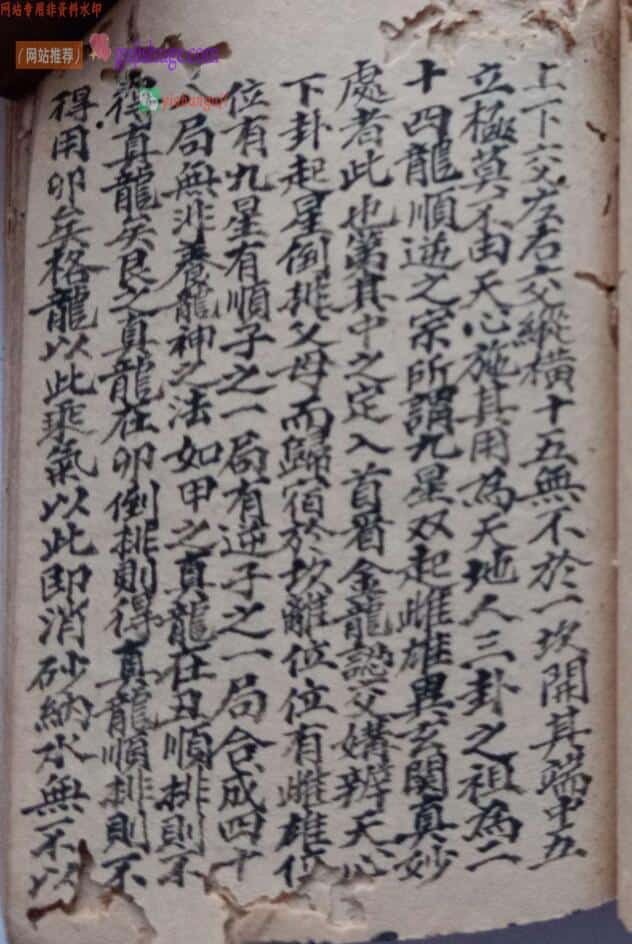 网站专用非资料水印
(网站推荐)
gujishuge.com
yishanguji
上下六爻左右六爻縱横十五無不於一坎開其端中五
立極莫不由天心施其用為天地人三卦之祖為二
十四龍順逆之宗所謂九星双起雌雄異玄関真妙
處者此也第其中之定入首看金龍認交媾辨天心
下卦起星倒排父母而歸宿於坎離位位有雌雄位
位有九星有順子之一局有逆子之一局合成四十
局無非養龍神之法如甲之真龍在丑順排則不
得真龍矣艮之真龍在卯倒排則得真龍順排則不
得用卯矣格龍以此乘氣以此即消砂納水無一不以